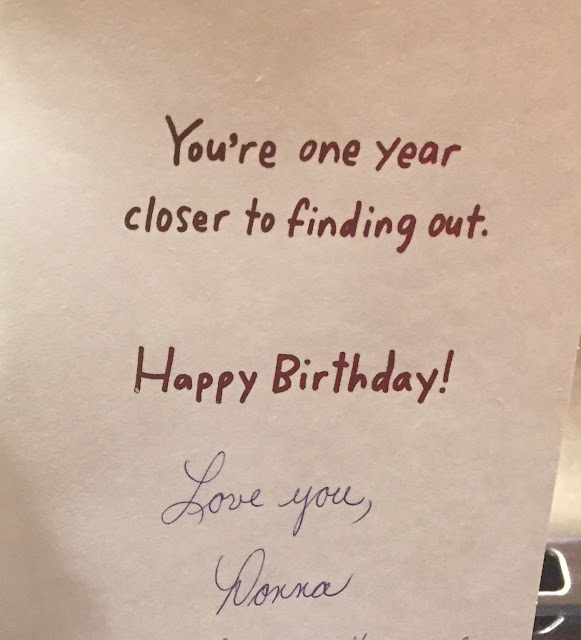 You're one year
closer to finding out.
Happy Birthday!
Love you,
Donna